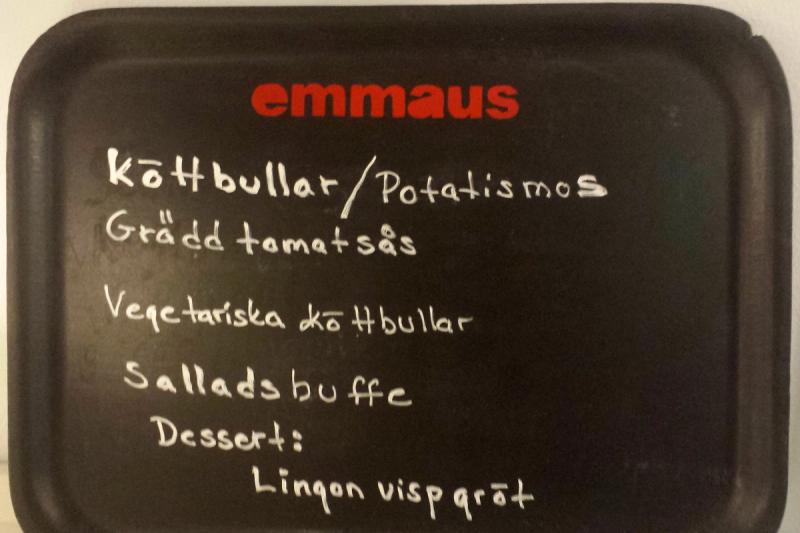 emmaus
Köttbullar/Potatismos
Grädd tomatsås
Vegetariska köttbullar
Salladsbuffe
Dessert:
Lingon vispgröt